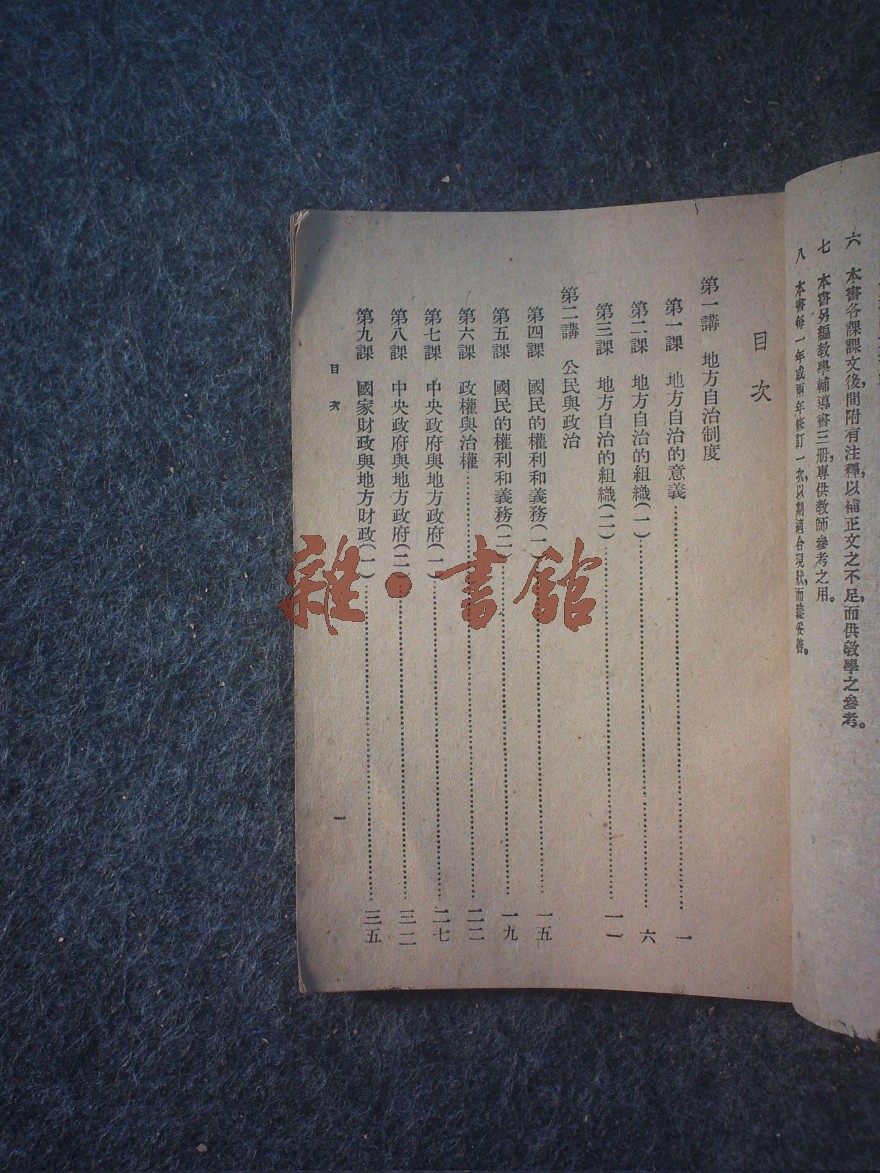 六 本書各課課文後,間附有注釋,以補正文之不足,而供教學之參考。
七 本書另編教學輔導書三册,專供教師參考之用。
八 本書每一年或兩年修訂一次,以期適合現狀,而臻妥善。
目次
第一講 地方自治制度
第一課 地方自治的意義 一
第二課 地方自治的組織(一) 六
第三課 地方自治的組織(二) 一一
第二講 公民與政治
第四課 國民的權利和義務(一) 一五
第五課 國民的權利和義務(二) 一九
第六課 政權與治權 二二
第七課 中央政府與地方政府(一) 二七
第八課 中央政府與地方政府(二) 三二
第九課 國家財政與地方財政(一) 三五
目次 一
雜·書館